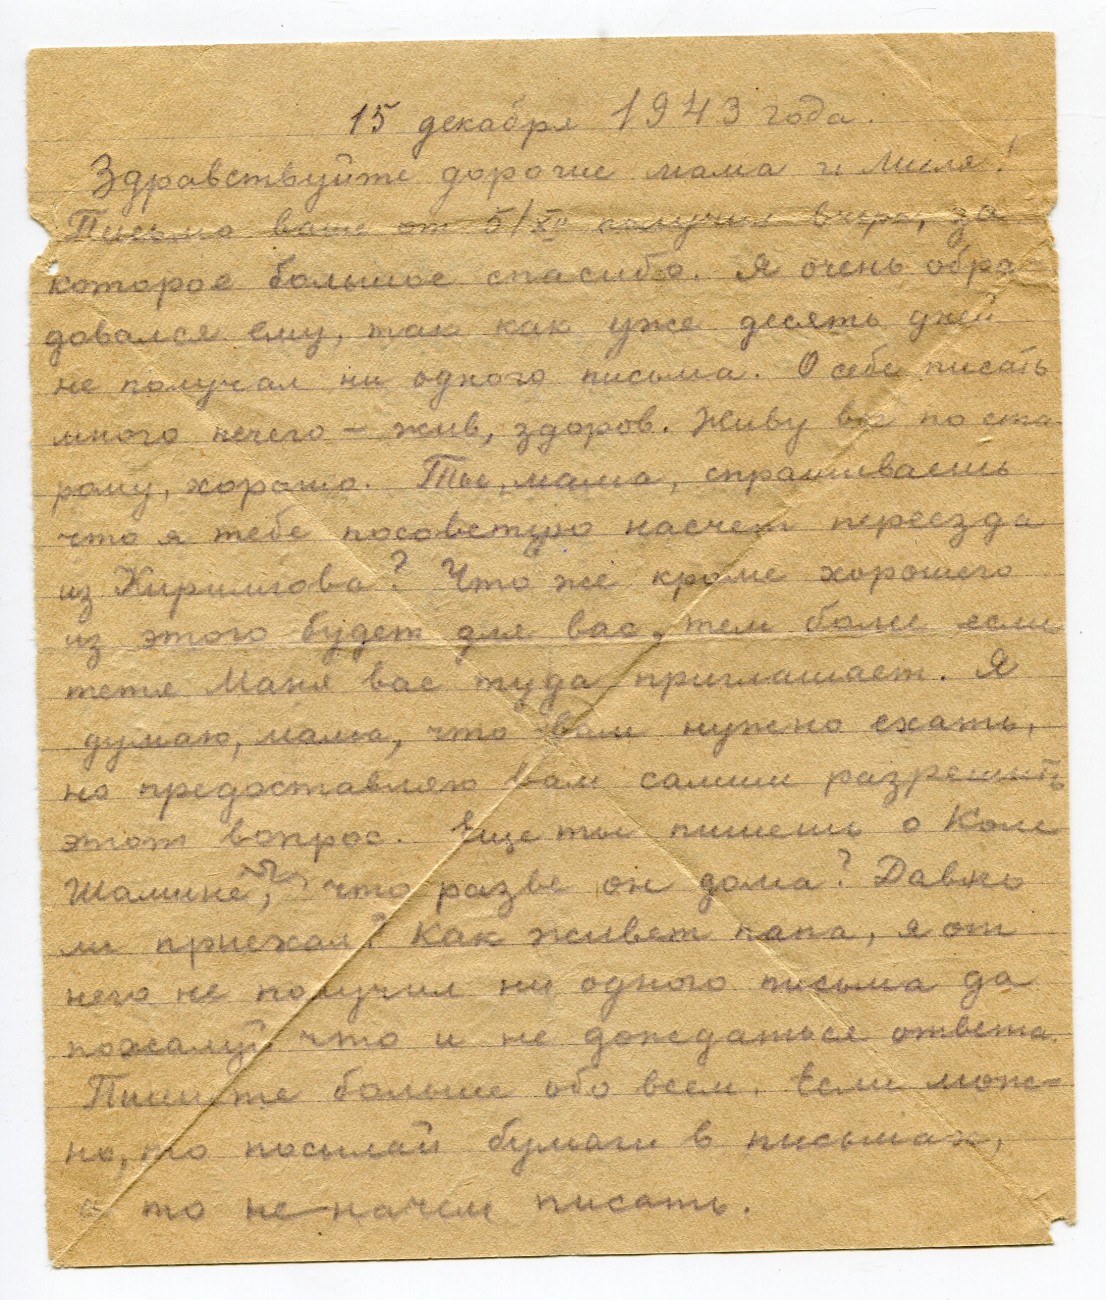 15 декабря 1943 года.
Здравствуйте дорогие мама и Миля!
Письмо ваше от 5/XII получил вчера, за
которое большое спасибо. Я очень обра
довался ему, так как уже десять дней
не получал ни одного письма. О себе писать
много нечего – жив, здоров. Живу все по ста
рому, хорошо. Ты, мама, спрашиваешь
что я тебе посоветую насчет переезда
из
? Что же кроме хорошего
из этого будет для вас, тем более если
тетя Маня вас туда приглашает. Я
думаю, мама, что вам нужно ехать,
но предоставляю вам самим разрешить
этот вопрос. Еще ты пишешь о Коле
Шамине, что разве он дома? Давно
ли приехал? Как живет папа, я от
него не получил ни одного письма да
пожалуй что и не дождаться ответа.
Пишите больше обо всем. Если мож-
но, то посылай бумаги в письмах,
а то не начем писать.